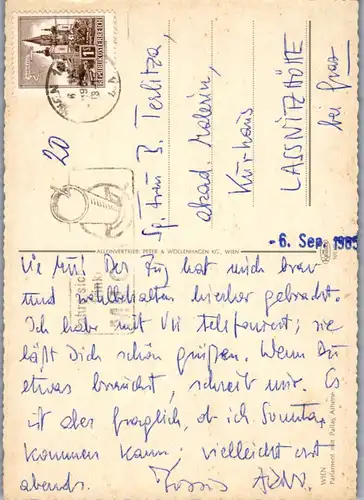 REPUBLIK ÖSTERREICH
WIEN
20
Sp. Frau B. Teslitza,
akad. Malerin,
Kurhaus
LASSNITZHÖHE
bei Graz
ALLEINVERTRIEB: PETER & WOLLENHAGEN KG., WIEN
-6. Sep. 1965
Der Zug hat mich brav
und wohlbehalten hierher gebracht.
Ich habe mit telefoniert; sie
läßt Dich schön grüßen. Wenn Du
etwas brauchst, schreib mir. Es
ist aber fraglich, ob ich Sonntag
kommen kann; vielleicht erst
abends.
WIEN
Parlament mit Pallas Athene